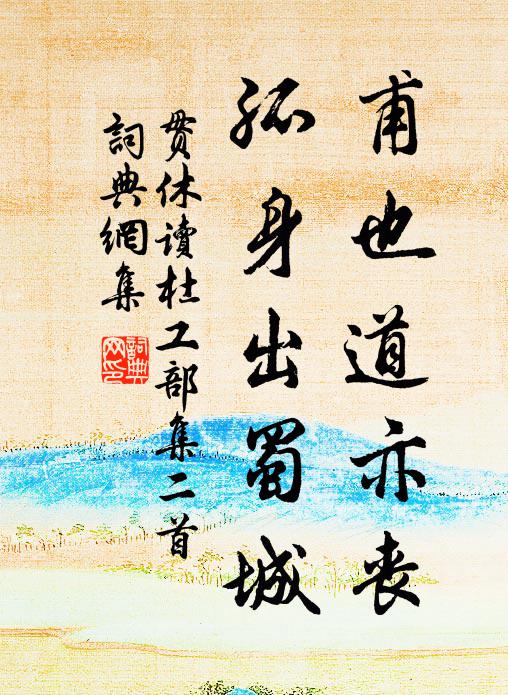 甫也道亦喪
孤身出蜀城
貫休讀杜工部集二首
詞典網集
詞典網印